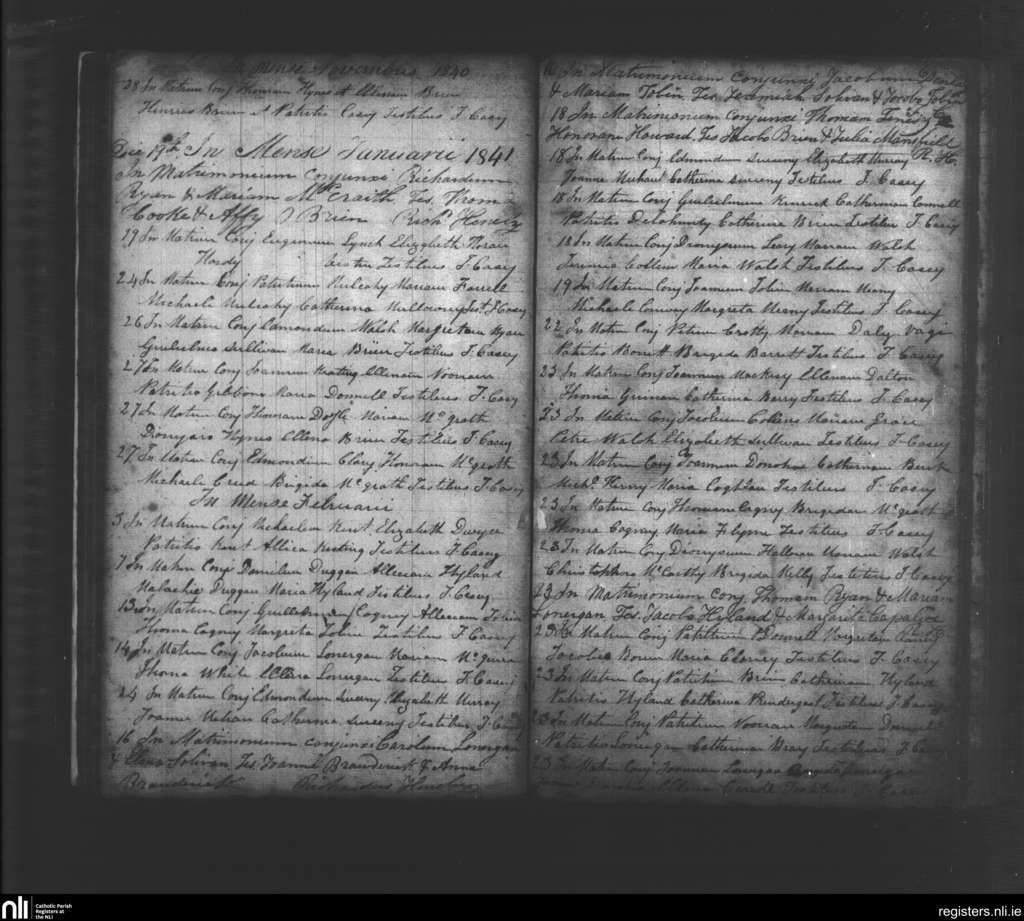 Mense Novembris 1840
28 In Matrim Conj Thomam Hynes et Ellenam Brien
Henrico Brien et Patritio Casey Testibus J. Casey
Dec 19th In Mense Januarii 1841
In Matrimonium conjunxi Richardum
Ryan & Mariam McCraith Tes. Thoma
Cooke & Affy O Brien Richd
29 In Matrim Conj Eugenium Lynch Elizabeth
Testibus J. Casey
24 In Matrim Conj Patritium Mulcahy Mariam Farrell
Michaele Mulcahy Catherina Test. J. Casey
26 In Matrim Conj Edmondum Walsh Margretam Ryan
Gulielmo Sullivan Maria Brien Testibus J. Casey
27 In Matrim Conj Joannem Keating Ellenam Noonan
Patritio Gibbons Maria Donnell Testibus J. Casey
27 In Matrim Conj Thomam Doyle Mariam Mcgrath
Dionysio Hynes Ellena Brien Testibus J. Casey
27 In Matrim Conj Edmondum Clary Honoram Mcgrath
Michaele Creed Brigida Mcgrath Testibus J. Casey
In Mense Februarii
3 In Matrim Conj Michaelem Kent Elizabeth Dwyer
Patritio Kent Allica Keating Testibus J. Casey
7 In Matrim Conj Danielem Duggan Alleciam Hyland
Malachie Duggan Maria Hyland Testibus J. Casey
13 In Matrim Conj Gulielmum Cagney Alleciam Tobin
Thoma Cagney Margreta Tobin Testibus J. Casey
14 In Matrim Conj Jacobum Lonergan Mariam Mcguire
Thoma White Ellena Lonergan Testibus J. Casey
14 In Matrim Conj Edmondum Sweeny Elizabeth Murray
Joanne Mehan Catherina Sweeny Testibus J. Casey
16 In Matrimonium conjunxi Carolum Lonergan
& Ellena Solivan Tes. Joanne Brauderick & Anna
Brauderick Richardus
16 In Matrimonium Conjunxi Jacobum
& Mariam Tobin Tes. Jeremiah Solivan & Jacobo Tobin
18 In Matrimonium Conjunxi Thomam
Honoram Howard Tes Jacobo Brien & Julia Mansfield R. H.
18 In Matrim Conj Edmundum Sweeny Elizabeth Murray
Joanne Mechan Catherina Sweeny Testibus J. Casey
18 In Matrim Conj Gulielmum Kinrick Catherinam Connell
Patritio Delahunty Catherina Brien Testibus J. Casey
18 In Matrim Conj Dionysium Leary Mariam Walsh
Jeremia Collins Maria Walsh Testibus J. Casey
19 In Matrim Conj Joannem Tobin Mariam Meany
Michaele Conway Margreta Meany Testibus J. Casey
22 In Matrim Conj Petrum Crotty Mariam Daly Vagi
Patritio Barrett Brigida Barrett Testibus J. Casey
23 In Matrim Conj Joannem Mackesy Ellenam Dalton
Thoma Guinan Catherina Barry Testibus J. Casey
23 In Matrim Conj Jacobum Collins Mariam Grace
Petre Walsh Elizabeth Sullivan Testibus J. Casey
23 In Matrim Conj Joannem Donohue Catherinam Burk
Michl Henry Maria Testibus J. Casey
23 In Matrim Conj Thomam Cagny Brigidam Mcgrath
Thoma Cagney Maria Flynn Testibus J. Casey
23 In Matrim Conj Dionysium Halloran Mariam Walsh
Christophero McCarthy Brigida Kelly Testibus J. Casey
23 In Matrimonium conj Thomam Ryan & Mariam
Lonergan Tes. Jacobo Hyland & Margarita
23 In Matrim Conj Patritium Donnell Margretam
Jacobo Maria Clancy Testibus J. Casey
23 In Matrim Conj Patritium Brien Catherinam Hyland
Patritio Hyland Catherina Prendergast Testibus J. Casey
23 In Matrim Conj Patritium Noonan Margretam
Patritio Lonergan Catherina Testibus J. Casey
23 In Matrim Conj Joannem Lonergan
Carroll Testibus J. Casey
nli
Catholic Parish
Registers at
the NLI
registers.nli.ie